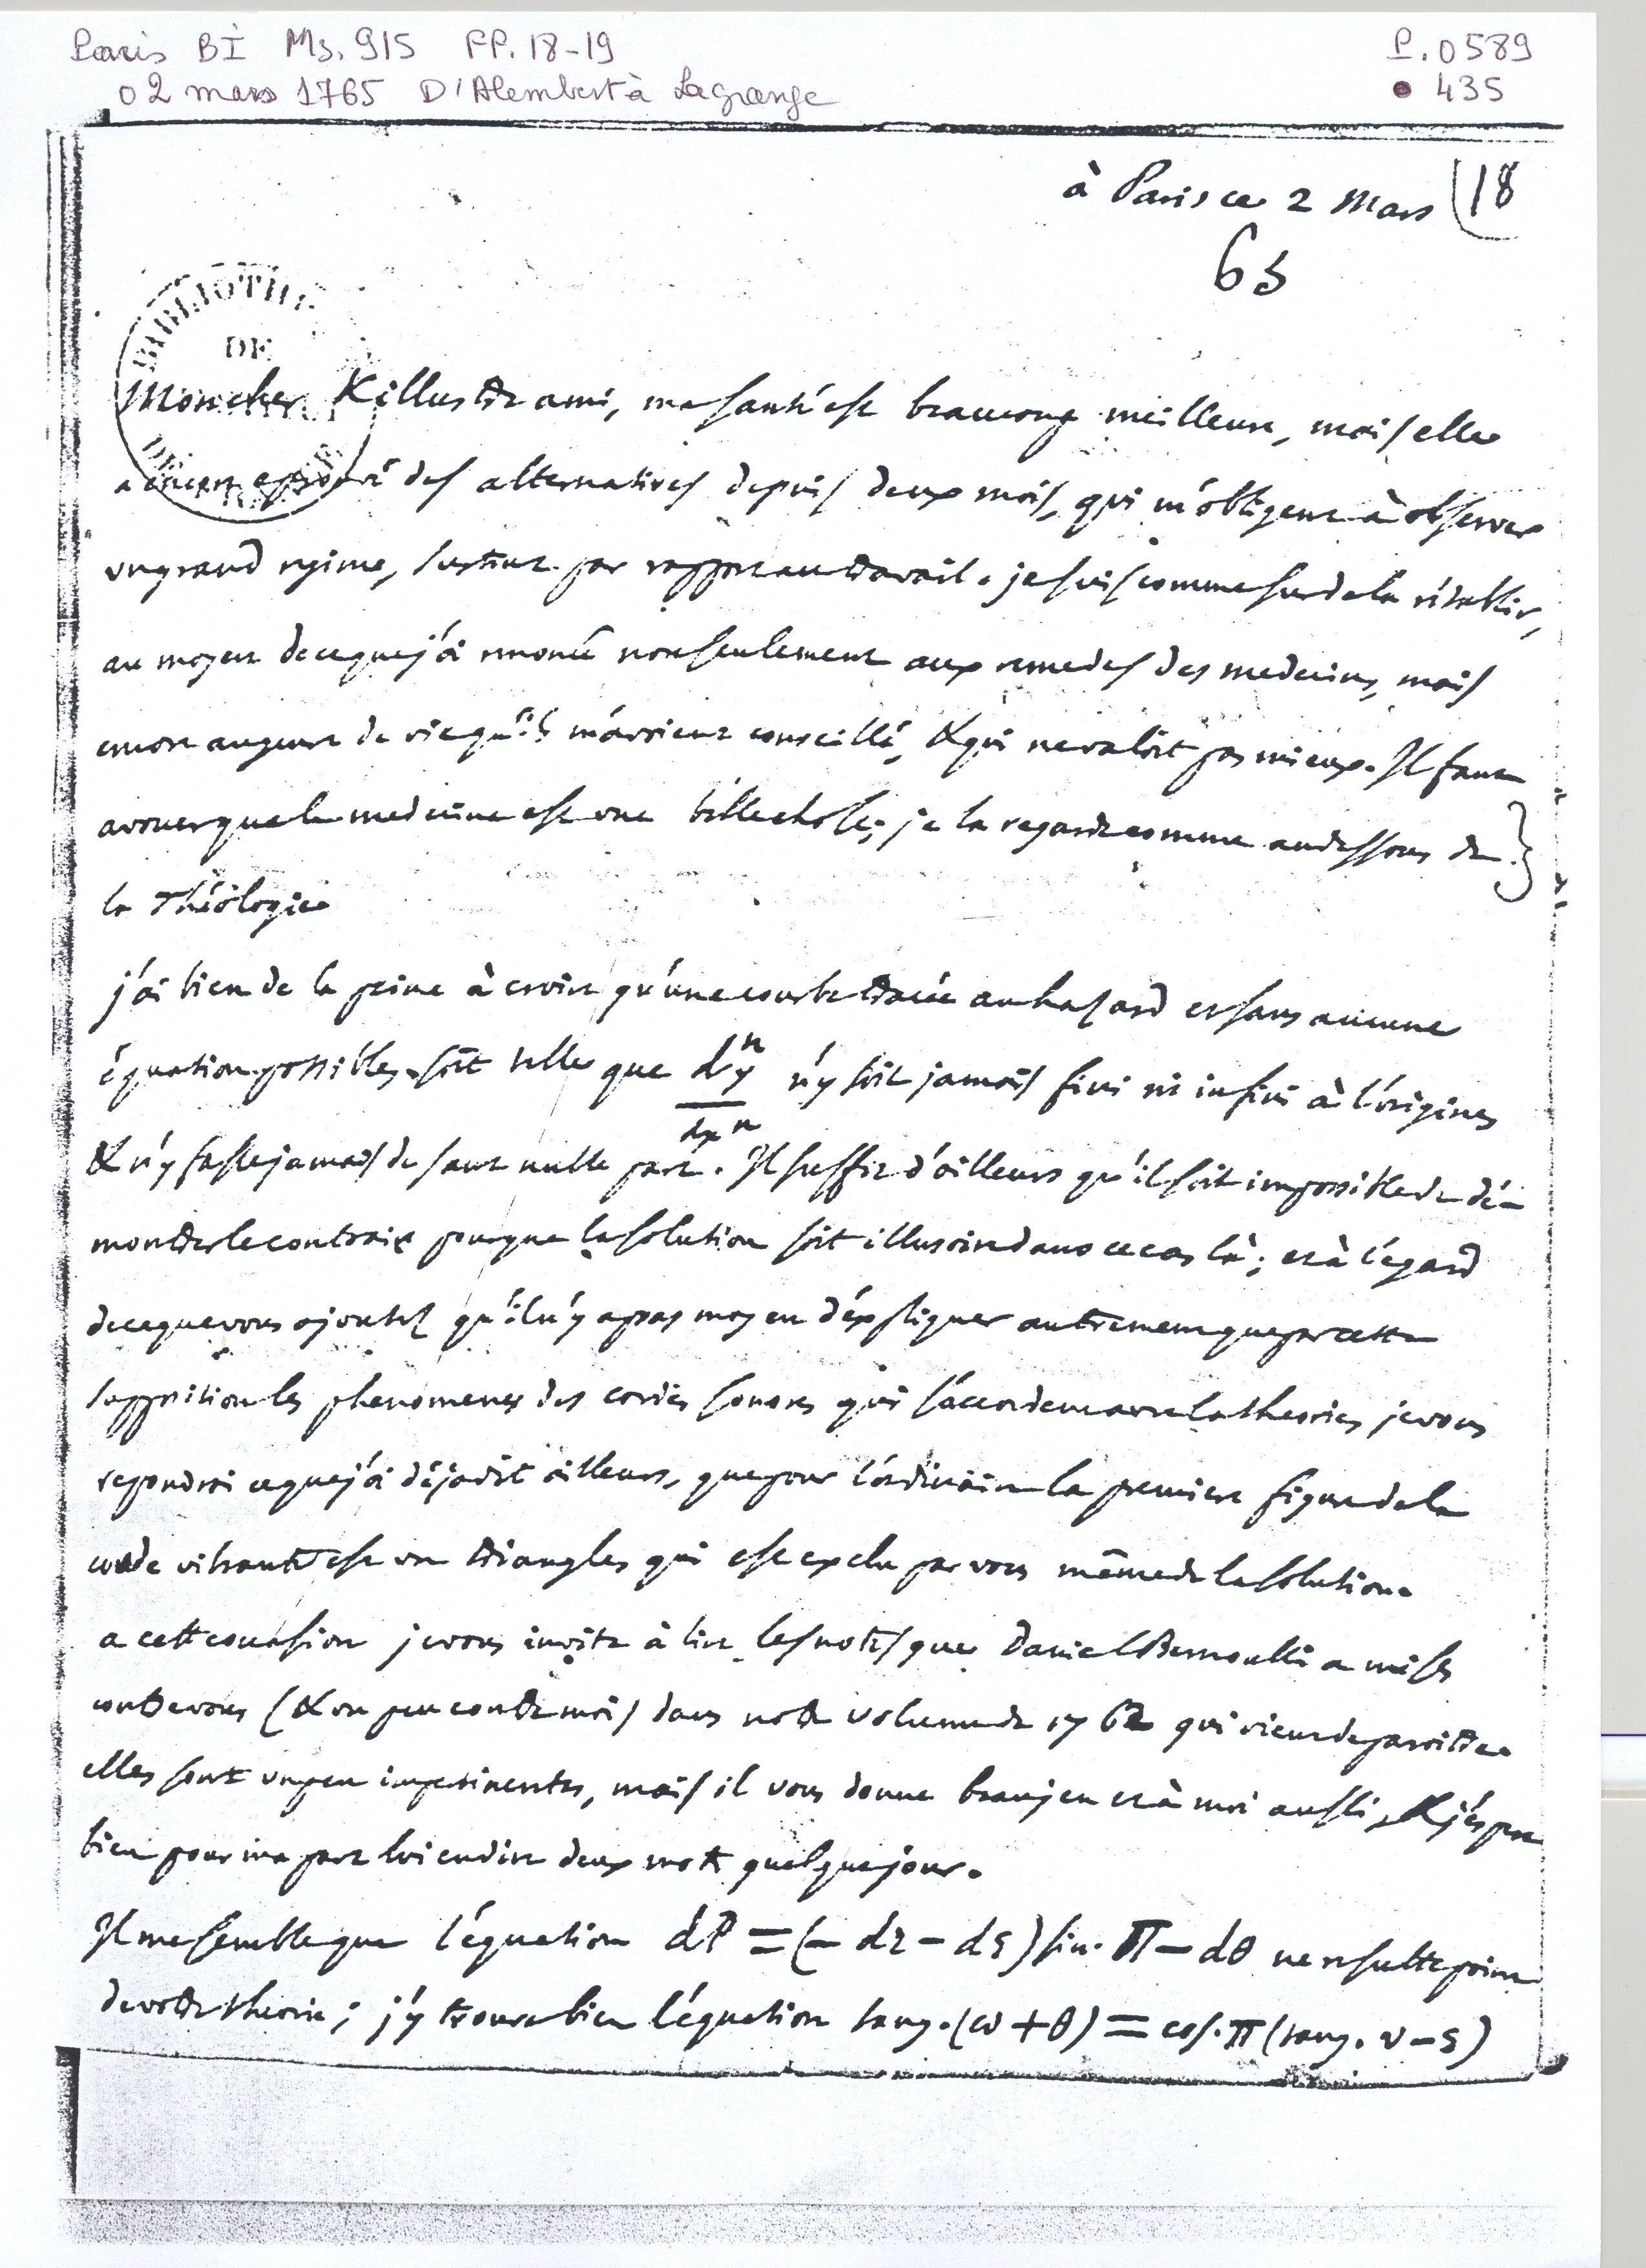 Paris BI Ms. 915 FF. 18-19
P. 0589
02 mars 1765 D'Alembert à Lagrange
435
à Paris ce 2 Mars
18
65
BIBLIOTHE
DE
Mon cher & illustre ami, ma santé est beaucoup meilleure, mais elle
a encor eprouvé des alternatives depuis deux mois, qui m'obligent à observer
un grand regime, surtout par rapport au travail. je suis comme sur de la rétablir,
au moyen de ce que j'ai renoncé non seulement aux remedes des medecins, mais
encore au genre de vie qu'ils m'avoient conseillé, & qui ne valoit pas mieux. Il faut
avouer que la medecine est une belle chose; je la regarde comme au dessous de
la Théologie
j'ai bien de la peine à croire qu'une courbe tracée au hasard et sans aucune
équation possible, soit telle que dⁿy/dxⁿ n'y soit jamais fini ni infini à l'origine,
& n'y fasse jamais de saut nulle part. Il suffit d'ailleurs qu'il soit impossible de dé-
montrer le contraire pour que la solution soit illusoire dans ce cas là; et à l'égard
de ce que vous ajoutez qu'il n'y a pas moyen d'expliquer autrement que par cette
supposition les phenomenes des cordes sonores qui s'accordent avec la theorie, je vous
repondrai ce que j'ai déja dit ailleurs, que pour l'ordinaire la premiere figure de la
corde vibrante est un triangle, qui est exclu par vous même de la solution.
a cette occasion je vous invite à lire les notes que Daniel Bernoulli a mises
contre vous (& un peu contre moi) dans notre volume de 1762 qui vient de paroitre.
elles sont un peu impertinentes, mais il vous donne beau jeu et à moi aussi, & j'espere
bien pour ma part lui en dire deux mots quelque jour.
Il me semble que l'équation dP = (- dε - ds) sin. π - dθ ne resulte point
de votre theorie; j'y trouve bien l'équation tang. (ω + θ) = cos. π (tang. ν - s)